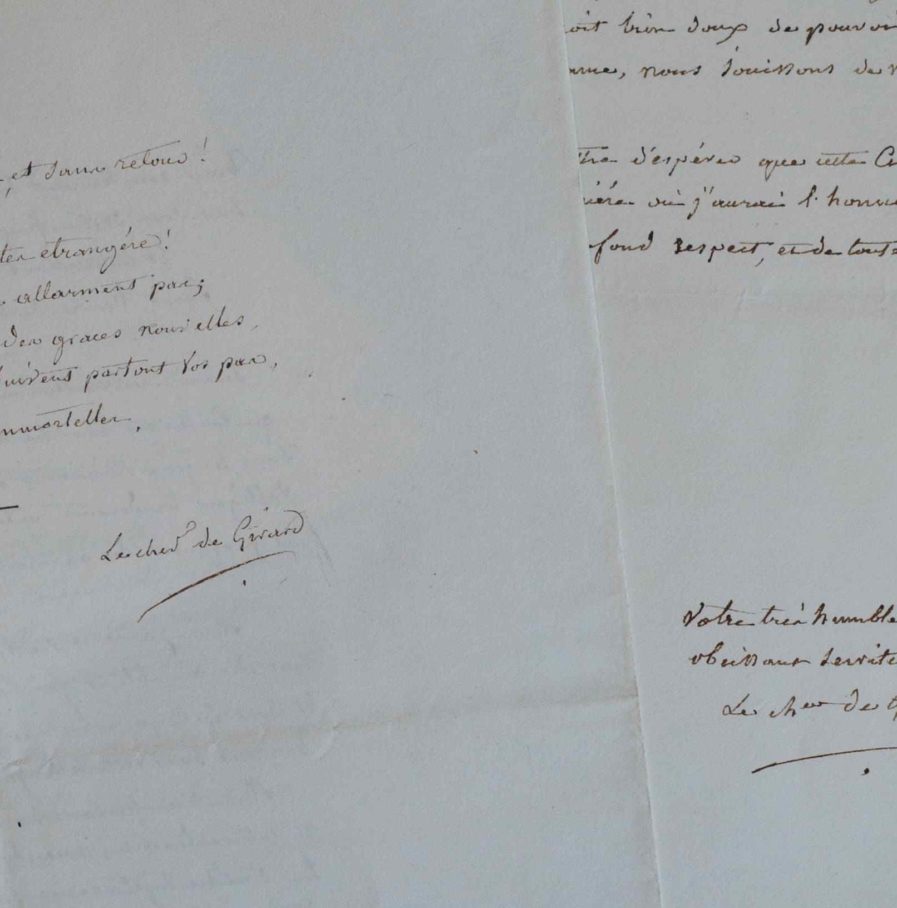 et sans retour!
etrangère!
allarment pas;
des graces nouvelles,
suivent partout vos pas,
immortelles.
Le cher de Girard
oit bien doux de pouvoi
ame, nous jouissons de v
d'espérer que cette C
ière où j'aurai l'honne
fond respect, et de toute
Votre très humble
obeissant servite
Le cher de G